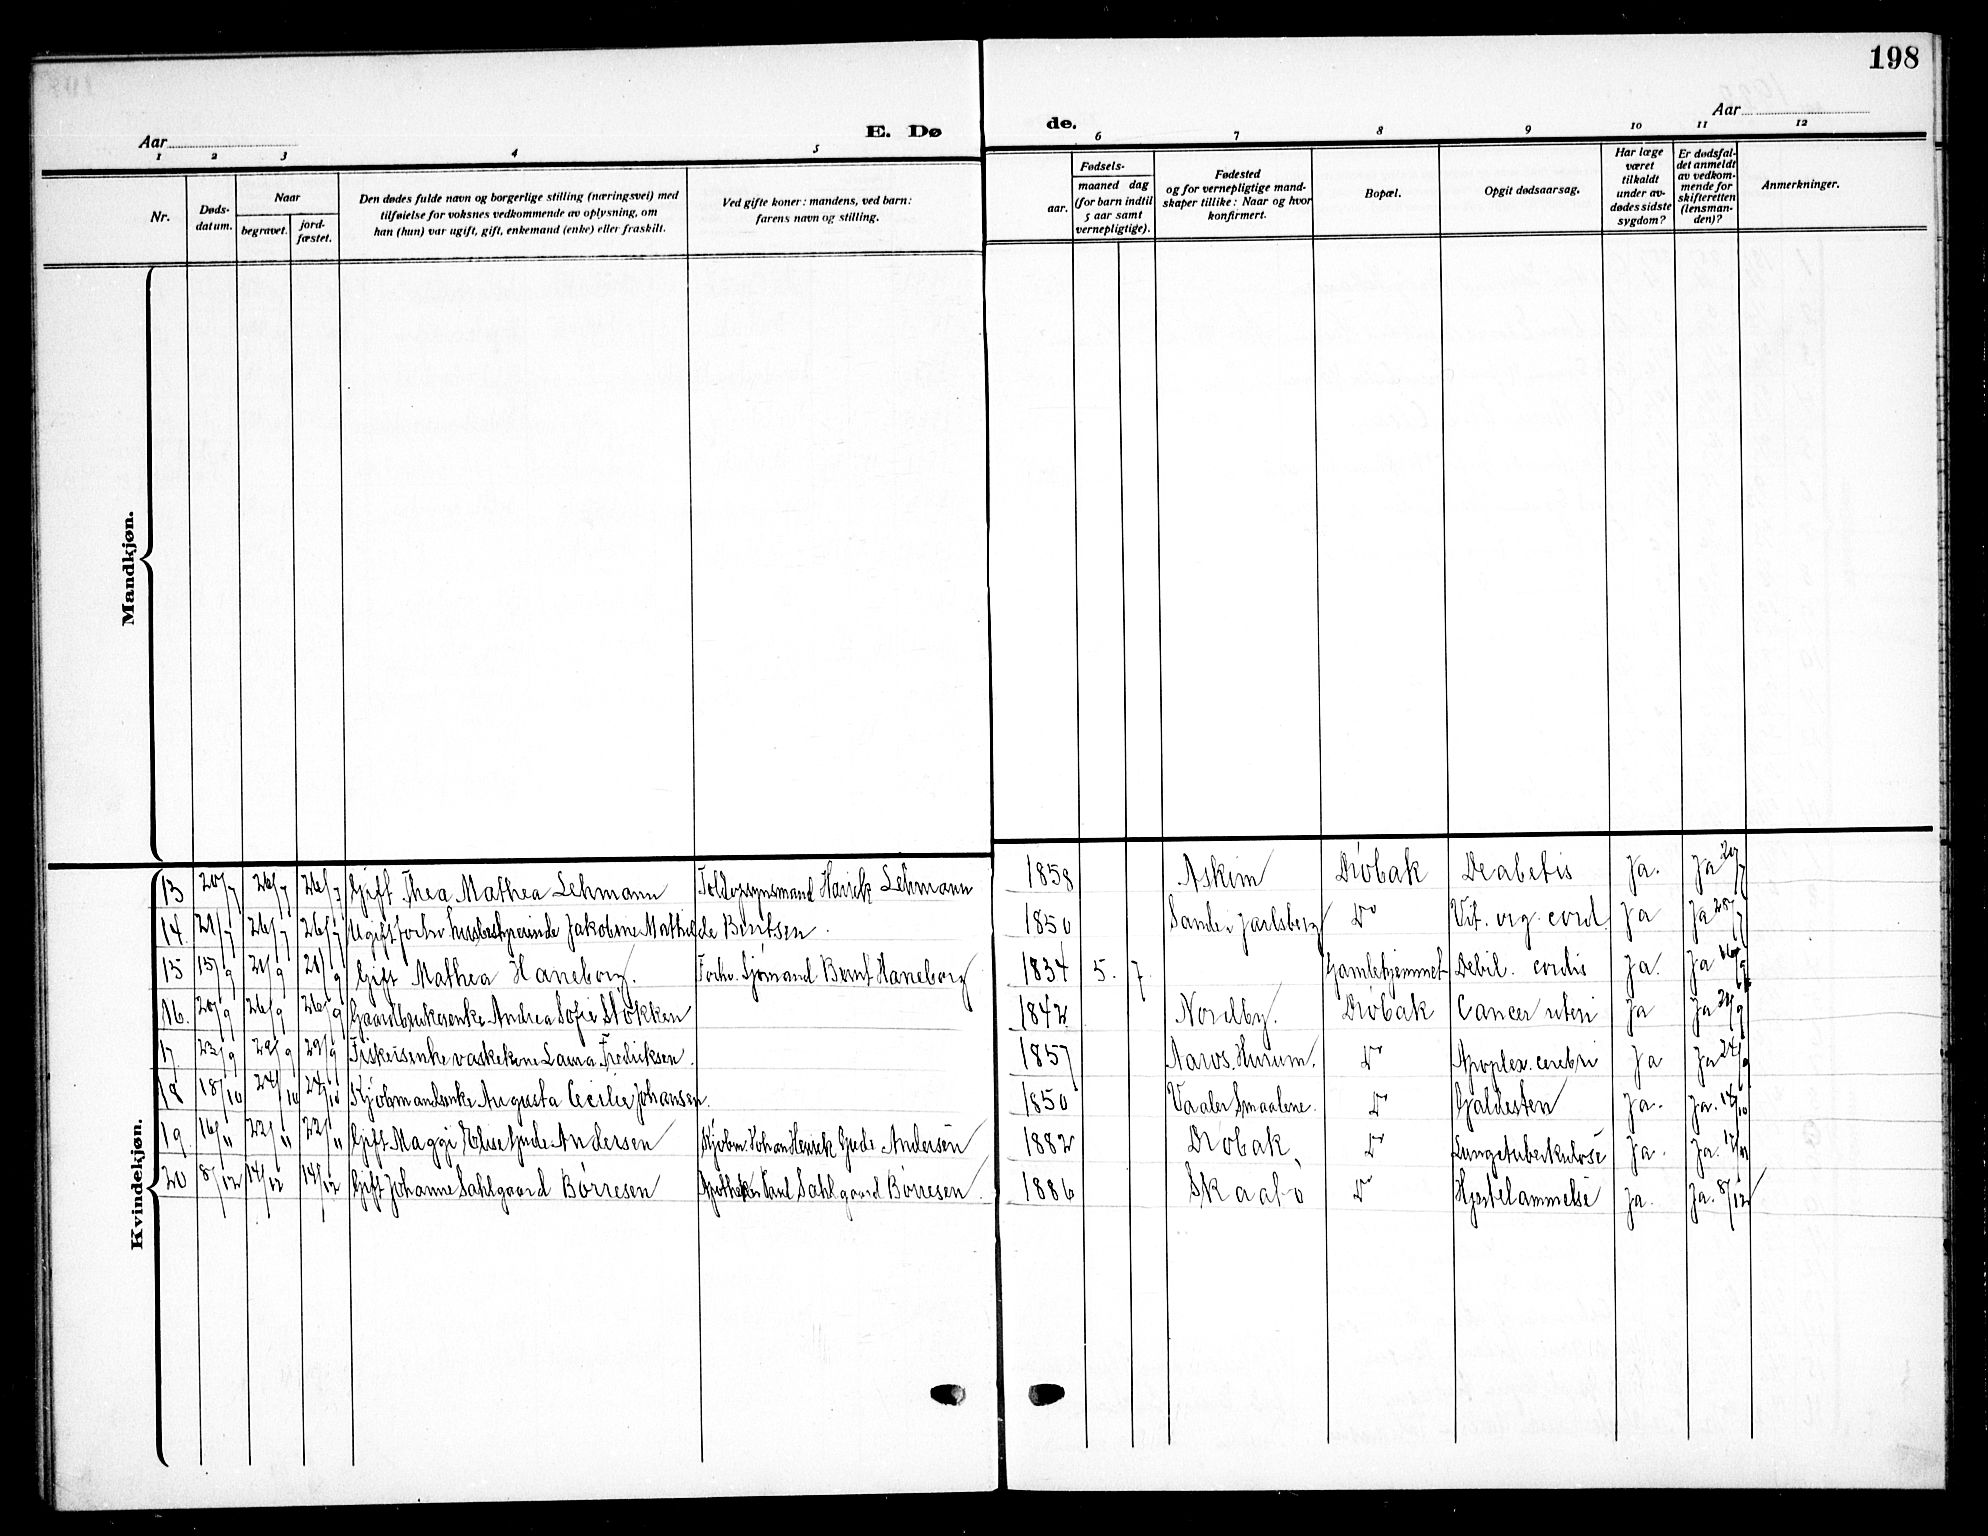 198
Aar
E. Dø
de.
Aar
1 2 3 4 5 6 7 8 9 10 11 12
Nr.
Døds-
datum.
Naar
begravet.
jord-
fæstet.
Den dødes fulde navn og borgerlige stilling (næringsvei) med
tilføielse for voksnes vedkommende av oplysning, om
han (hun) var ugift, gift, enkemand (enke) eller fraskilt.
Ved gifte koner: mandens, ved barn:
farens navn og stilling.
Fødsels-
aar.
maaned dag
(for barn indtil
5 aar samt
vernepligtige).
Fødested
og for vernepligtige mand-
skaper tillike: Naar og hvor
konfirmert.
Bopæl.
Opgit dødsaarsag.
Har læge
været
tilkaldt
under av-
dødes sidste
sygdom?
Er dødsfal-
det anmeldt
av vedkom-
mende for
skifteretten
(lensman-
den)?
Anmerkninger.
Mandkjøn.
Kvindekjøn.
13 20/7 26/7 26/7 Gift Thea Mathea Lehmann Toldopsynsmand Henrik Lehmann 1858 Askim Drøbak Deabetis Ja. Ja 20/7
14. 21/7 26/7 26/7 Ugift forhv husbestyrerinde Jakobine Mathilde Berntsen. 1850 Sande Jarlsberg Do Vit. org. cord. Ja Ja
15 15/9 21/9 21/9 Gift Mathea Haneborg. Forhv. Sjømand Bernt Haneborg 1834 5. 7. Gamlehjemmet Debil. cordis Ja. Ja 16/9
16. 20/9 26/9 26/9 Gaardbrukerenke Andrea Sofie Stokken 1842 Nordby. Drøbak Cancer uteri Ja Ja
17 23/9 29/9 29/9 Fiskerenke vaskekone Laura Fredriksen. 1857 Aaros. Hurum. Do Apoplex. cerebri Ja Ja 24/9
18 18/10 24/10 24/10 Kjøbmandsenke Augusta Cecilie Johansen. 1850 Vaaler Smaalene. Do Galdesten Ja. Ja. 18/10
19. 16/11 22/11 22/11 Gift Maggi Else Gude Andersen Kjøbm. Johan Henrik Gude Andersen 1882 Drøbak Do Lungetuberkulose Ja. Ja. 17/11
20 8/12 14/12 14/12 Gift Johanne Sahlgaard Børresen Apotheker Carl Sahlgaard Børresen. 1886 Skaabo Do Hjertelammelse Ja. Ja. 8/12